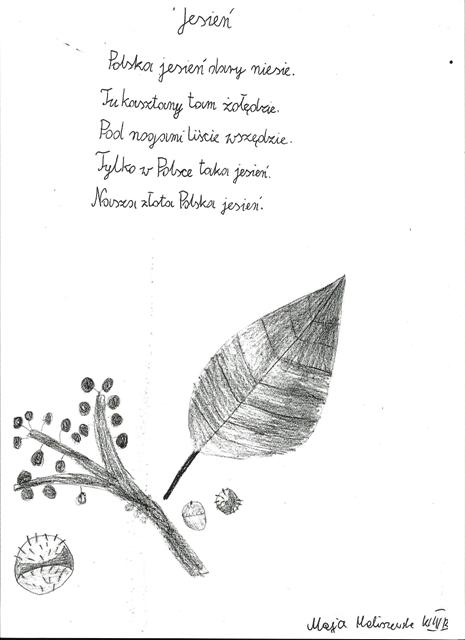 Jesień
Polska jesień dary niesie.
Tu kasztany tam żołędzie.
Pod nogami liście wszędzie.
Tylko w Polsce taka jesień.
Nasza złota Polska jesień.
Maja